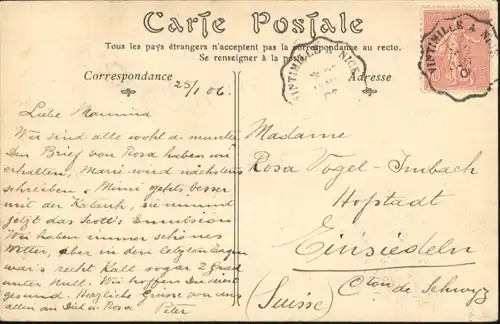 Carte Postale
Tous les pays étrangers n'acceptent pas la correspondance au recto.
Se renseigner à la poste.
Correspondance
Adresse
VINTIMILLE A NICE
VINTIMILLE A NICE
25/1 06.
Liebe Mamma
Wir sind alle wohl u. munter
Den Brief von Rosa haben wir
erhalten, Marie wird nächstens
schreiben. Mimi gehts besser
mit der Katarrh, sie nimmt
jetzt das Scott's Emulsion
Wir haben immer schönes
Wetter, aber in den letzten Tagen
war's recht kalt sogar 2 Grad
unter Null. Wir hoffen Du seiest
gesund. Herzliche Grüsse von uns
allen an Dich u. Rosa Peter
Madame
Rosa Vogel-Imbach
Hofstadt
Einsiedeln
Cton de Schwyz
(Suisse)